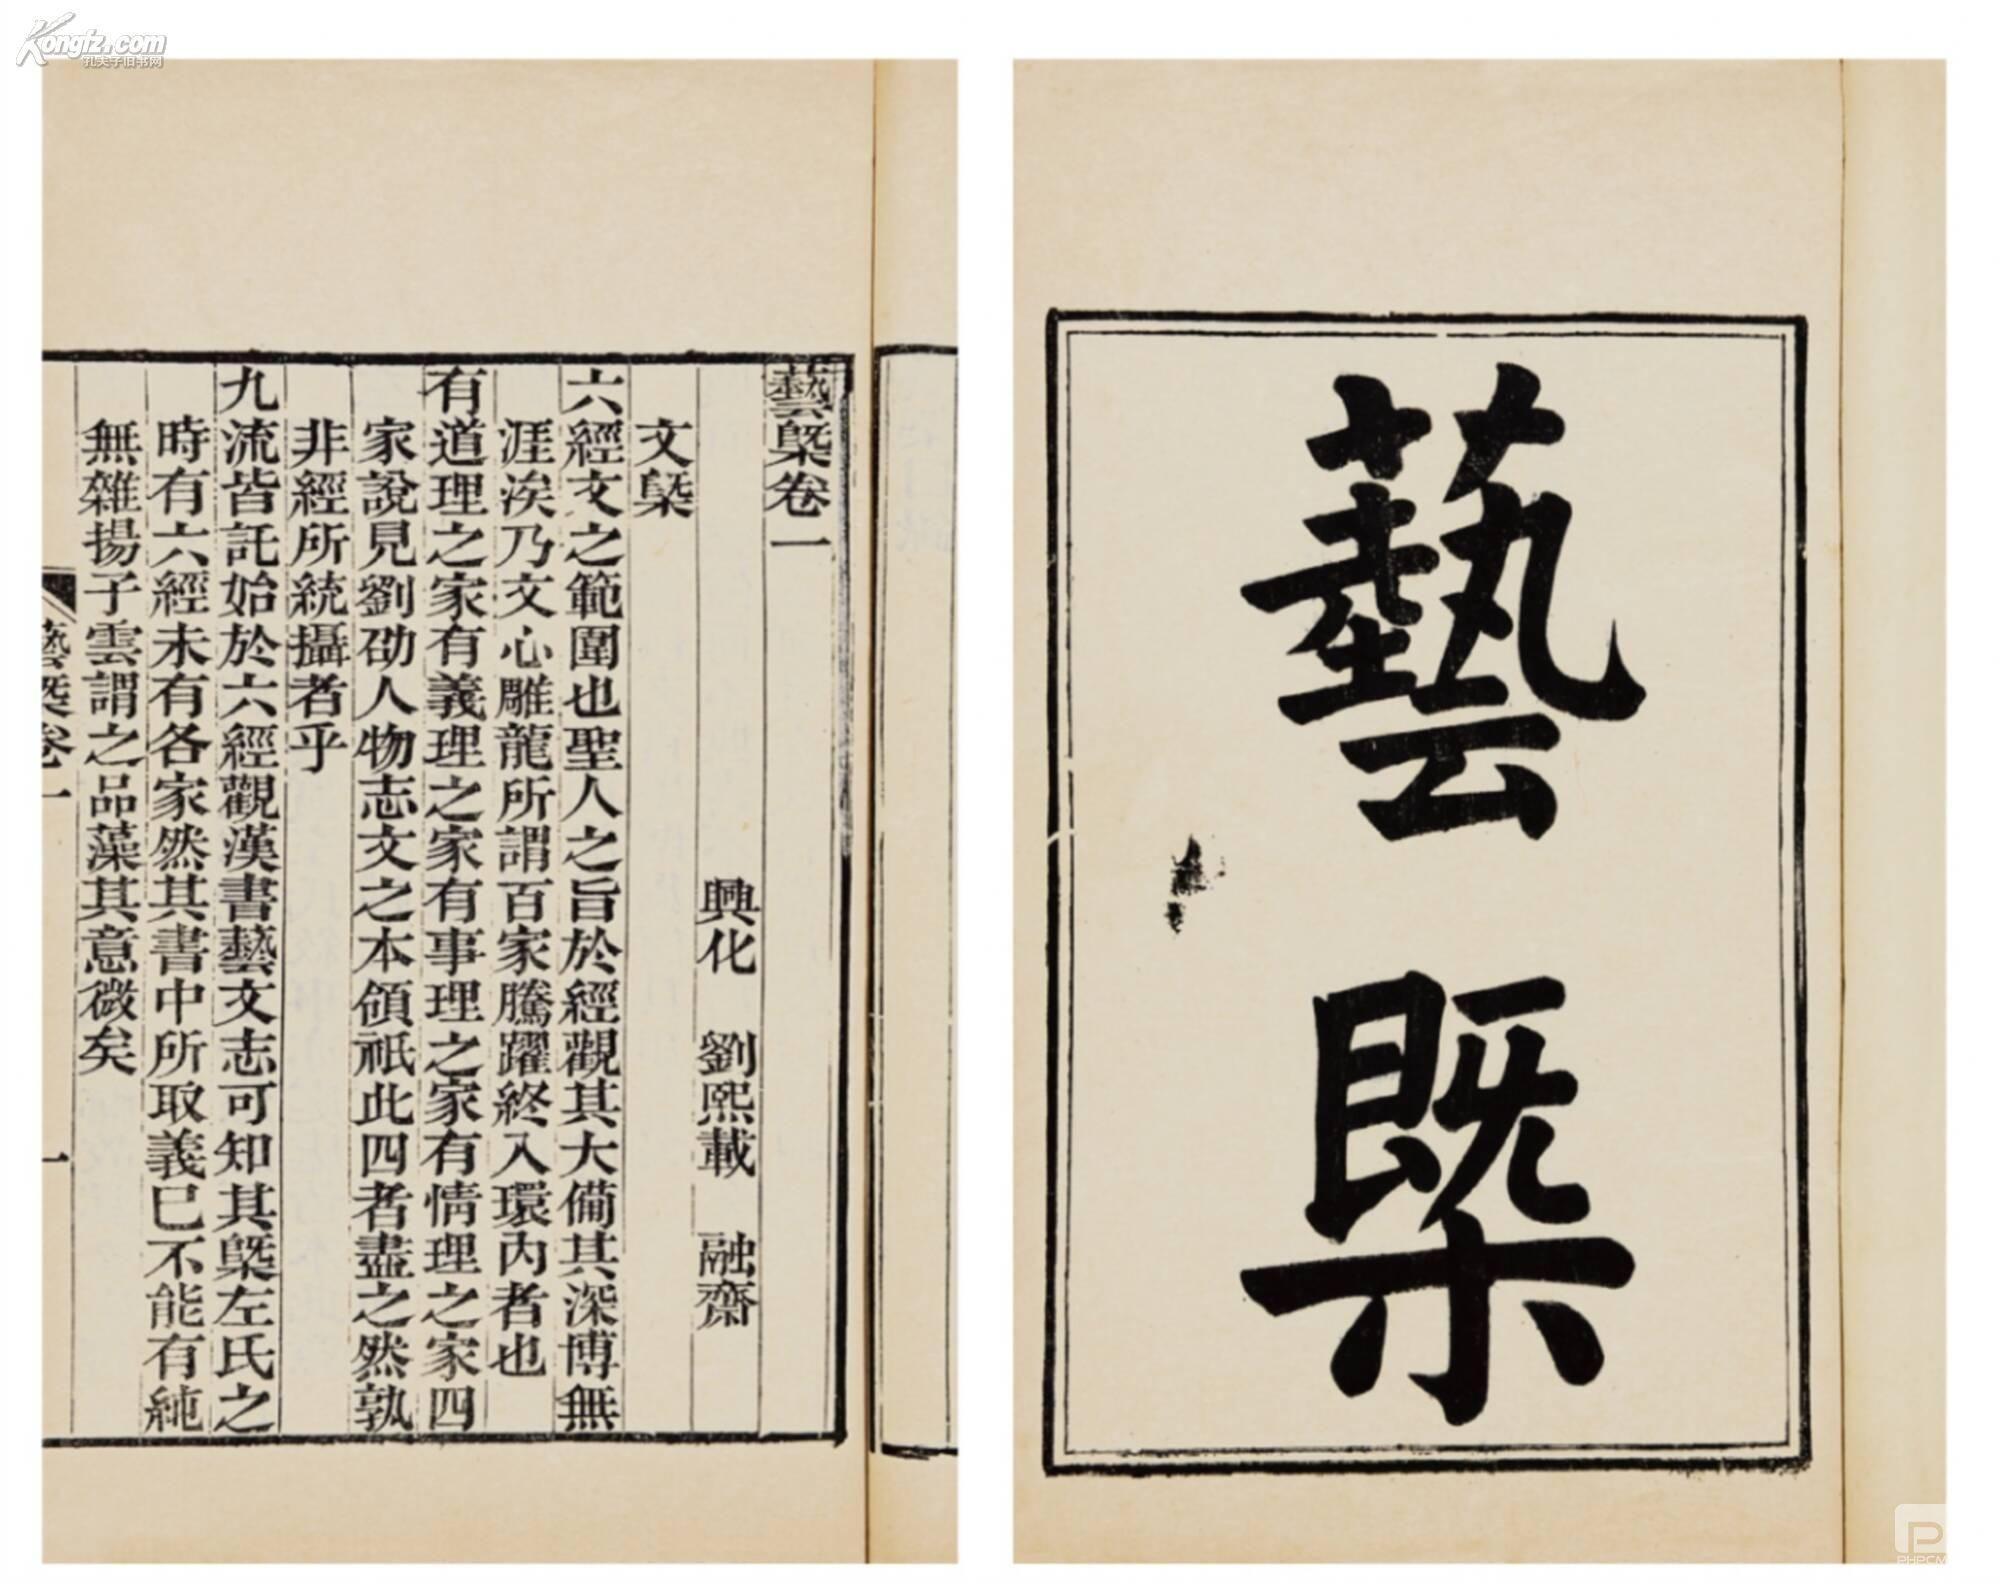 藝槩
藝槩卷一
興化　劉熙載　融齋
文槩
六經文之範圍也聖人之旨於經觀其大僃其深博無
涯涘乃文心雕龍所謂百家騰躍終入環內者也
有道理之家有義理之家有事理之家有情理之家四
家說見劉劭人物志文之本領祇此四者盡之然孰
非經所統攝者乎
九流皆託始於六經觀漢書藝文志可知其槩左氏之
時有六經未有各家然其書中所取義已不能有純
無雜揚子雲謂之品藻其意微矣
藝槩卷一
一
Kongfz.com
孔夫子旧书网
PHPCM